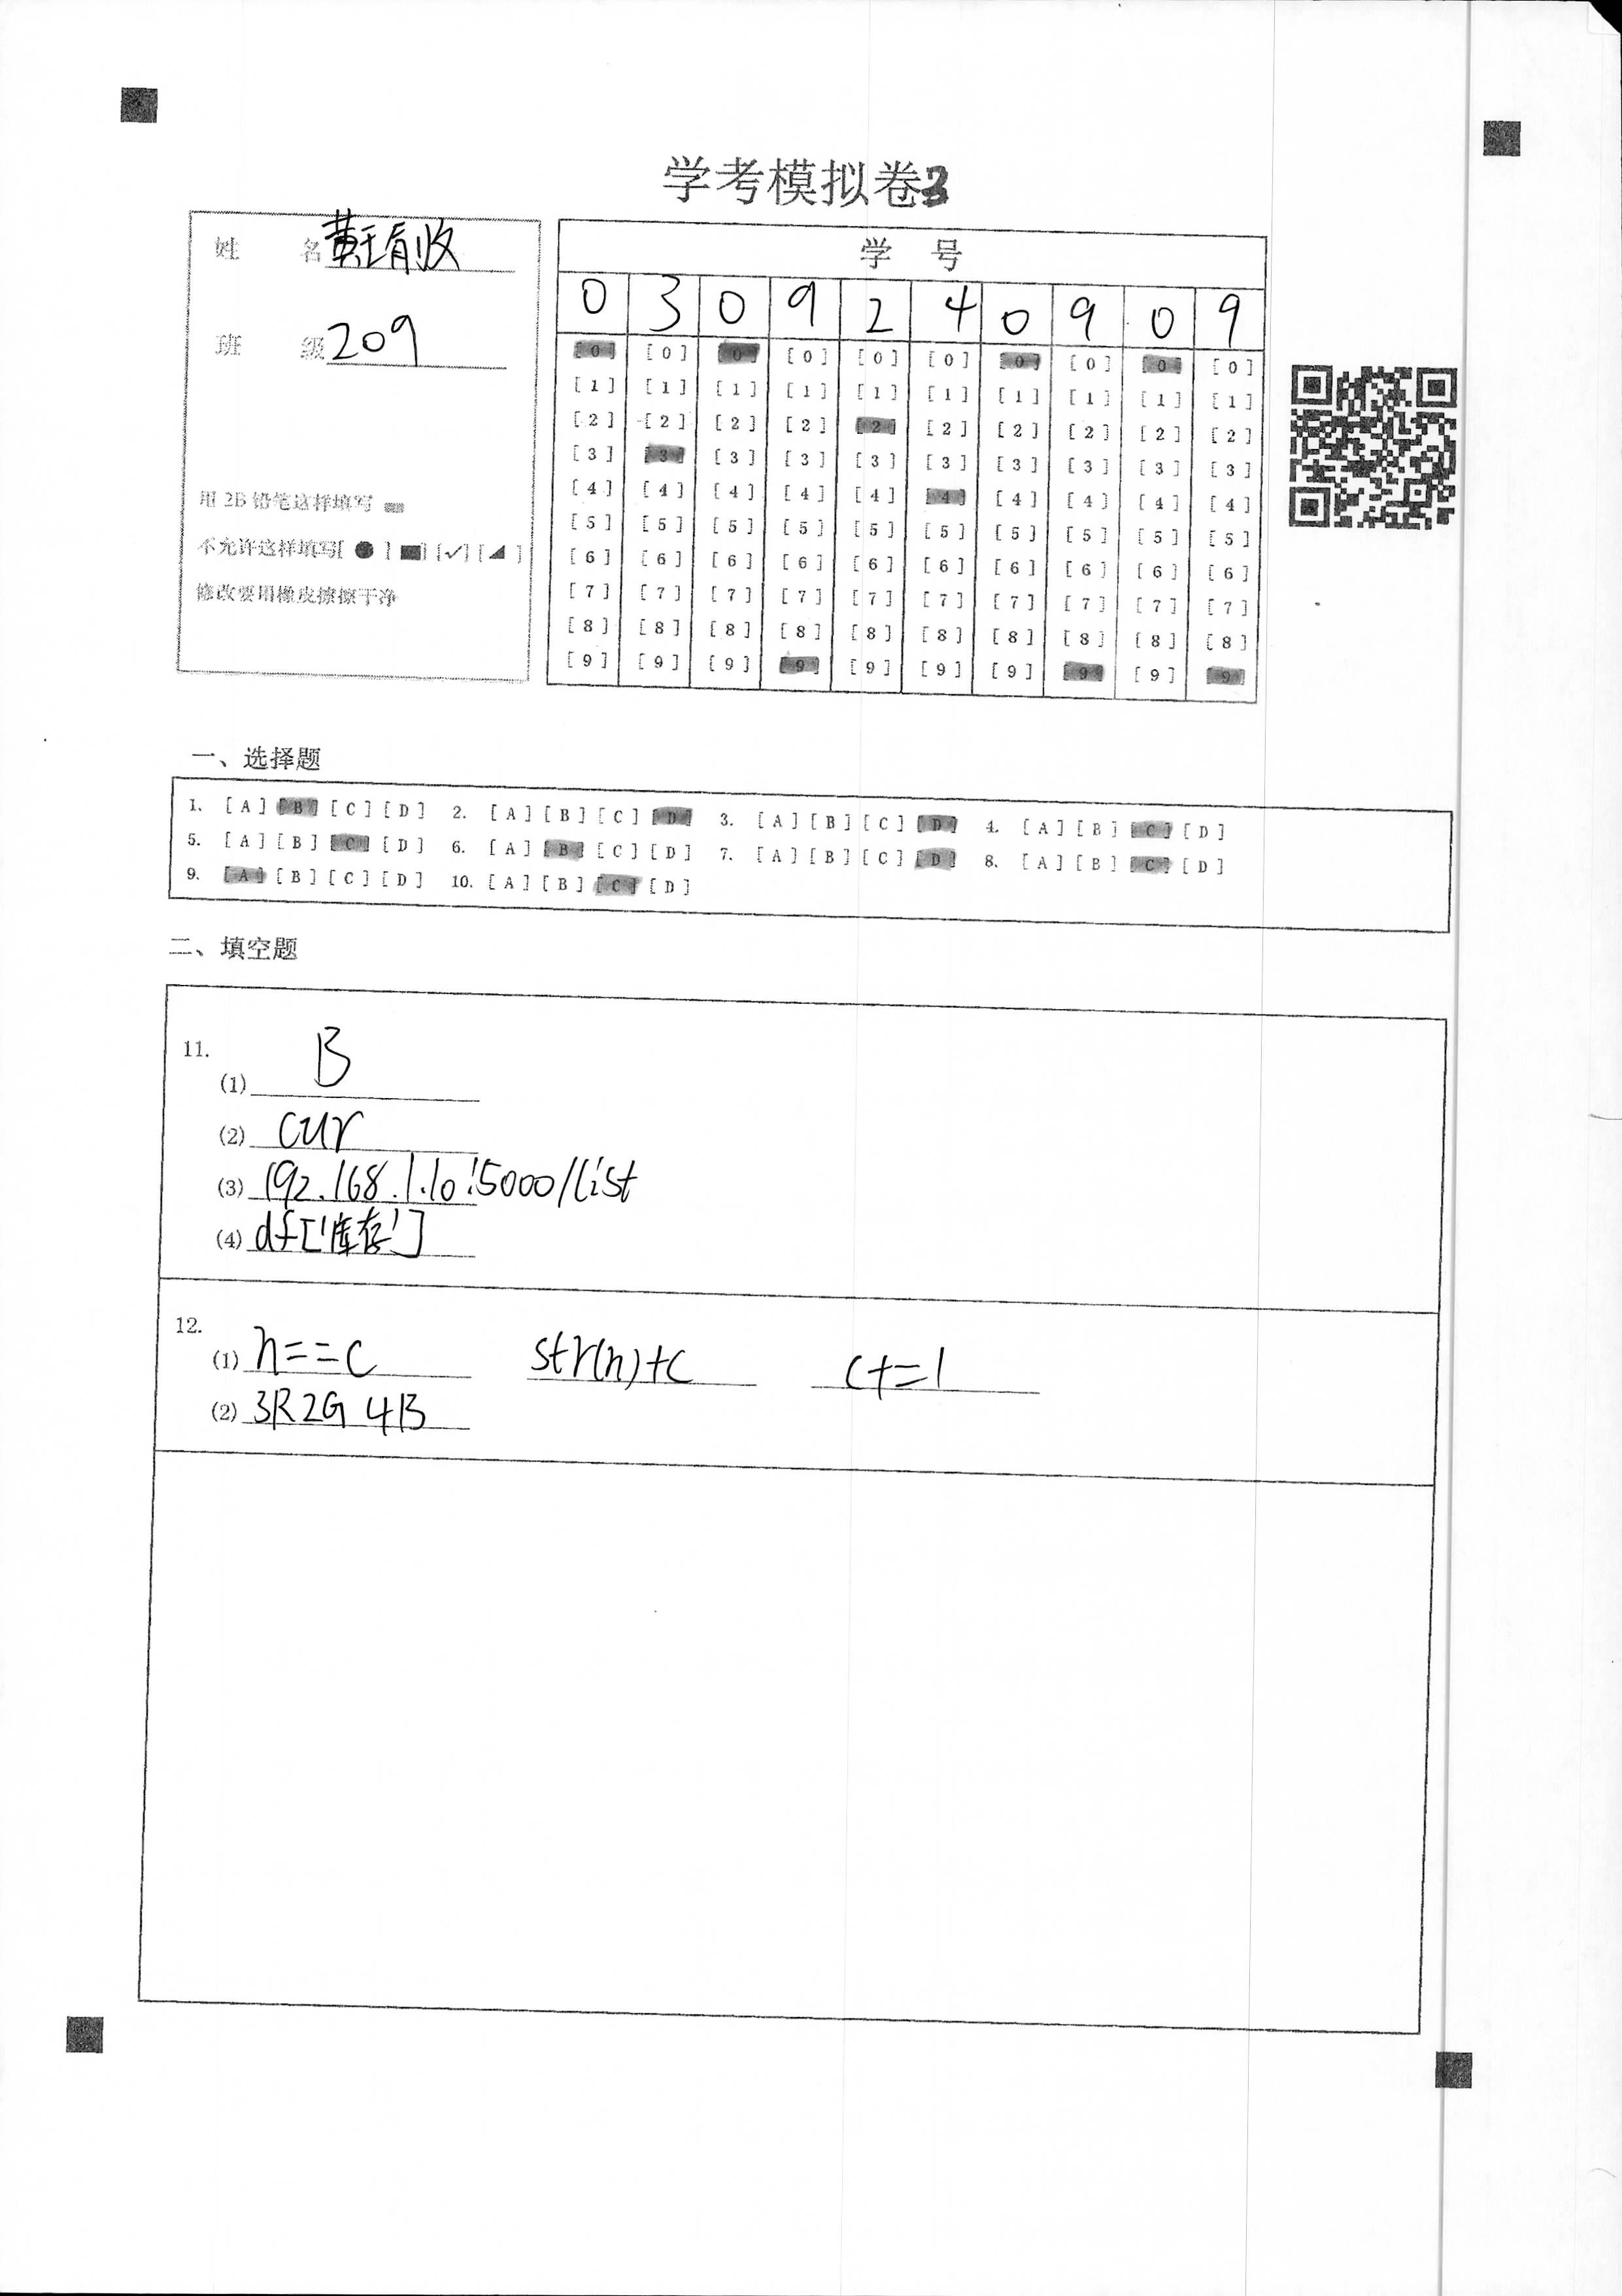 学考模拟卷3
姓 名
班 级 209
用 2B 铅笔这样填写
不允许这样填写[ ● ] [■] [✓] [◢ ]
修改要用橡皮擦擦干净
学 号
0 3 0 9 2 4 0 9 0 9
[0] [0] [0] [0] [0] [0] [0] [0] [0] [0]
[1] [1] [1] [1] [1] [1] [1] [1] [1] [1]
[2] [2] [2] [2] [2] [2] [2] [2] [2] [2]
[3] [3] [3] [3] [3] [3] [3] [3] [3] [3]
[4] [4] [4] [4] [4] [4] [4] [4] [4] [4]
[5] [5] [5] [5] [5] [5] [5] [5] [5] [5]
[6] [6] [6] [6] [6] [6] [6] [6] [6] [6]
[7] [7] [7] [7] [7] [7] [7] [7] [7] [7]
[8] [8] [8] [8] [8] [8] [8] [8] [8] [8]
[9] [9] [9] [9] [9] [9] [9] [9] [9] [9]
一、选择题
1. [A] [B] [C] [D] 2. [A] [B] [C] [D] 3. [A] [B] [C] [D] 4. [A] [B] [C] [D]
5. [A] [B] [C] [D] 6. [A] [B] [C] [D] 7. [A] [B] [C] [D] 8. [A] [B] [C] [D]
9. [A] [B] [C] [D] 10. [A] [B] [C] [D]
二、填空题
11.
(1) B
(2) cur
(3) 192.168.1.10:5000/list
(4) df['库存']
12.
(1) n==c str(n)+c c+=1
(2) 3R2G4B